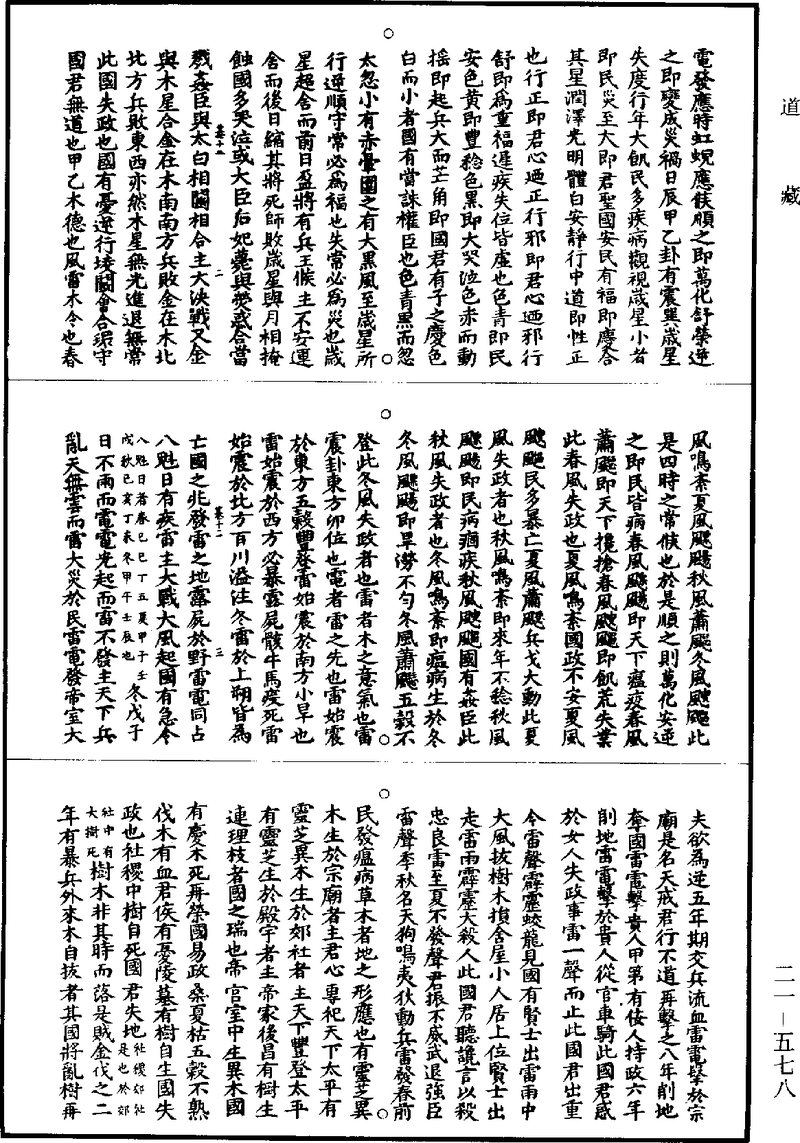 道藏
電發應時虹蜺應候順之即萬化舒榮逆
之即變成災禍日辰甲乙卦有震巽歲星
失度行年大飢民多疾病觀視歲星小者
即民災至大即君聖國安民有福即應合
其星潤澤光明體白安靜行中道即性正
也行正即君心迺正行邪即君心迺邪行
舒即為重福遲疾失位皆虛也色青即民
安色黃即豐稔色黑即大哭泣色赤而動
搖即起兵大而芒角即國君有子之慶色
白而小者國有當誅權臣也色青黑而忽
太忽小有赤暈圍之有大黑風至歲星所
行逆順守常必為福也失常必為災也歲
星超舍而前曰盈將有兵王侯主不安運
舍而後曰縮其將死師敗歲星與月相掩
蝕國多哭泣或大臣后妃薨與熒惑合當
戮姦臣與太白相鬬相合主大決戰又金
與木星合金在木南南方兵敗金在木北
北方兵敗東西亦然木星無光進退無常
此國失政也國有憂逆行掩鬬會合環守
國君無道也甲乙木德也風雷木令也春
風鳴紊夏風颸颸秋風蕭颸冬風颸颸此
是四時之常候也於是順之則萬化安逆
之即民皆病春風颸颸即天下瘟疫春風
蕭颸即天下攙搶春風颸颸即飢荒失業
此春風失政也夏風鳴紊國政不安夏風
颸颸民多暴亡夏風蕭颸兵戈大動此夏
風失政者也秋風鳴紊即來年不稔秋風
颸颸即民病痼疾秋風颸颸國有姦臣此
秋風失政者也冬風鳴紊即瘟病生於冬
冬風颸颸即旱澇不勻冬風蕭颸五穀不
登此冬風失政者也雷者木之意氣也雷
震卦東方卯位也電者雷之先也雷始震
於東方五穀豐登雷始震於南方小旱也
雷始震於西方必暴露屍骸牛馬疫死雷
始震於北方百川溢注冬雷於上朔皆為
亡國之兆發雷之地露屍於野雷電同占
八魁日有疾雷主大戰大風起國有急令
八魁日者春己巳丁丑夏甲子壬戌秋己亥丁未冬甲午壬辰也 冬戊子
日不雨而電電光起而雷不發主天下兵
亂天無雲而雷大災於民雷電發帝室大
夫欲為逆五年期交兵流血雷電擊於宗
廟是名天戒君行不道再擊之八年削地
奪國雷電擊貴人甲第有佞人持政六年
削地雷電擊於貴人從官車騎此國君惑
於女人失政事雷一聲而止此國君出重
令雷聲霹靂蛟龍見國有賢士出雷雨中
大風拔樹木損舍屋小人居上位賢士出
走雷雨霹靂大殺人此國君聽讒言以殺
忠良雷至夏不發聲君振不威武退強臣
雷聲季秋名天狗鳴夷狄動兵雷發春前
民發瘟病草木者地之形應也有靈芝異
木生於宗廟者主君心專祀天下太平有
靈芝異木生於郊社者主天下豐登太平
有靈芝生於殿宇者主帝家後昌有樹生
連理枝者國之瑞也帝宮室中生異木國
有慶木死再榮國易政桑夏枯五穀不熟
伐木有血君侯有憂陵墓有樹自生國失
政也社稷中樹自死國君失地社稷郊社是也於郊
社中有大樹死 樹木非其時而落是賊金伐之二
年有暴兵外來木自拔者其國將亂樹再
二一－五七八